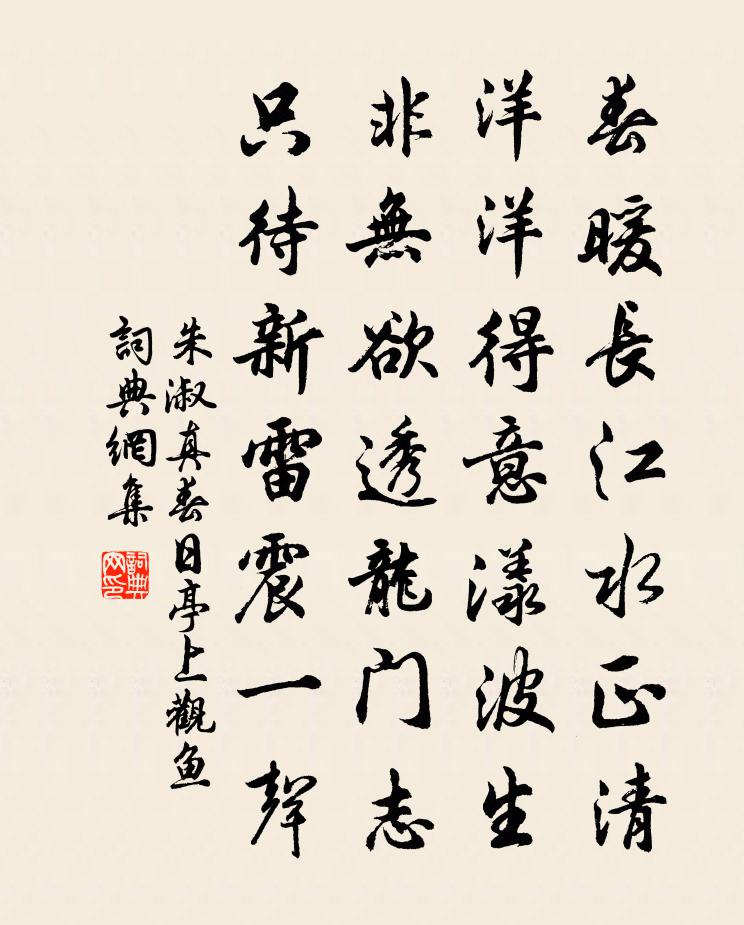 春暖長江水正清
洋洋得意漾波生
非無欲透龍门志
只待新雷震一聲
朱淑真春日亭上觀鱼
詞典網集
詞典
文印